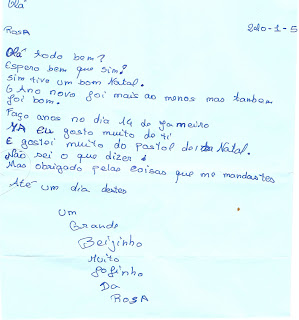 Olá
Rosa 220-1-5
Olá todo bem?
Espero bem que sim?
Sim tive um bom Natal.
O Ano novo foi mais ao menos mas tanbem
foi bom.
Faço anos no dia 14 de Janeiro
Eu gosto muito de ti
E gostei muito do postal de Natal.
Não sei o que dizer
Mas obrigado pelas coisas que me mandastes
Até um dia destes
Um
Grande
Beijinho
Muito
Fofinho
Da
Rosa